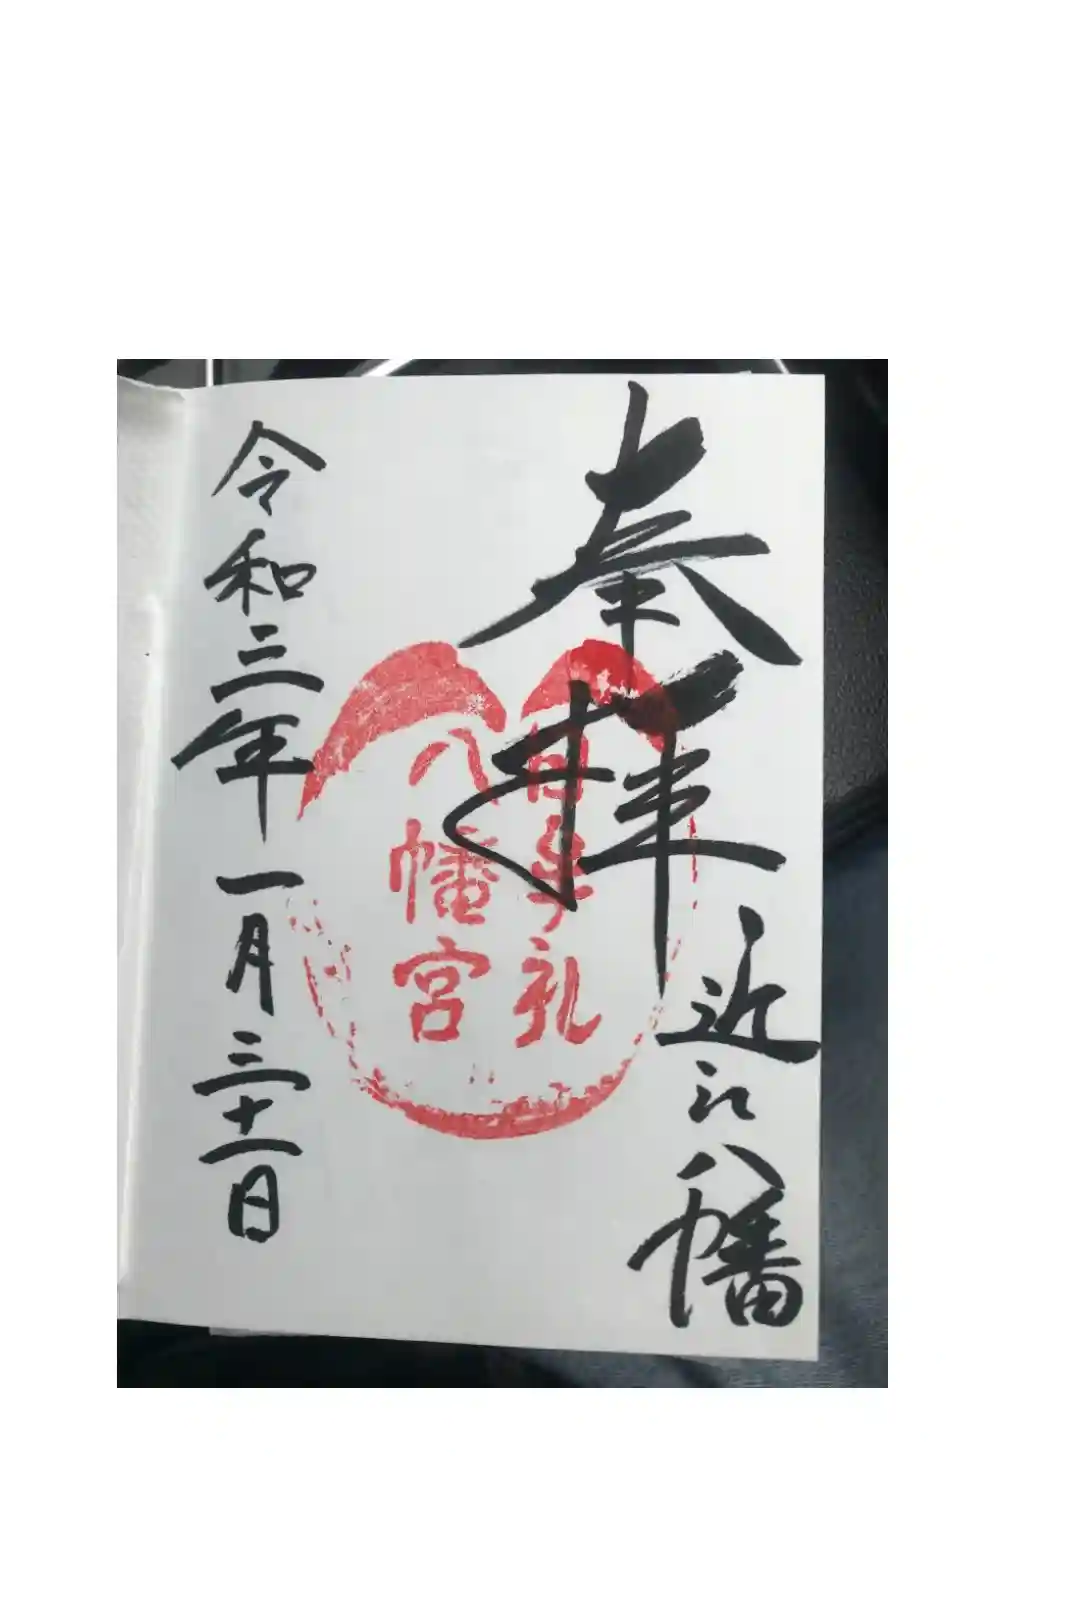 奉拝
近江八幡
日牟礼
八幡宮
令和三年一月三十一日